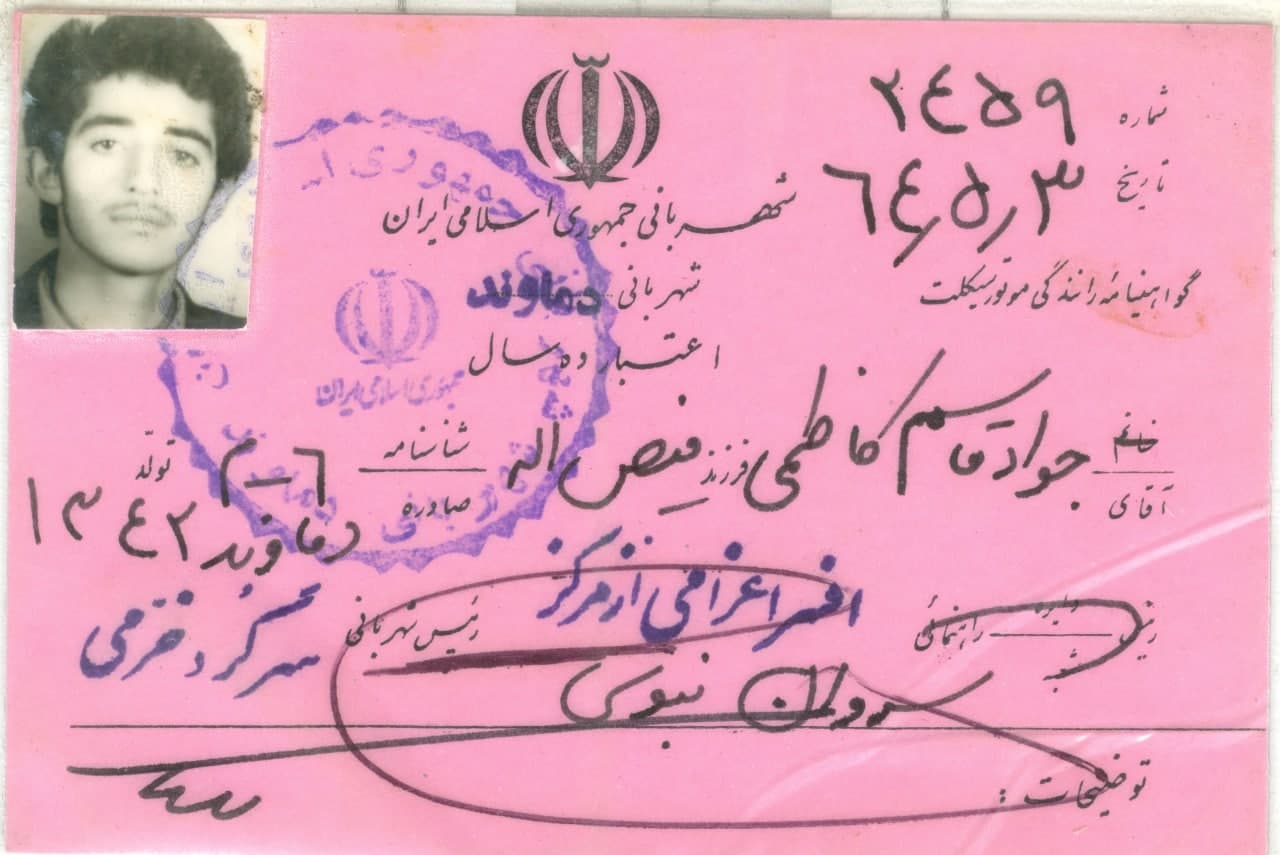 شماره ۲٤۵۹
تاریخ ٦٤٫۵٫۳
شهربانی جمهوری اسلامی ایران
گواهینامه رانندگی موتورسیکلت
شهربانی دماوند
اعتبار ده سال
جمهوری اسلامی ایران
خانم
آقای
جواد قاسم کاظمی فرزند فیض اله
شناسنامه ٦
صادره دماوند
تولد ۱۳٤۲
افسر اعزامی از مرکز
رئیس
دایره
شعبه
راهنمائی
رئیس شهربانی
سرگرد خرمی
توضیحات: